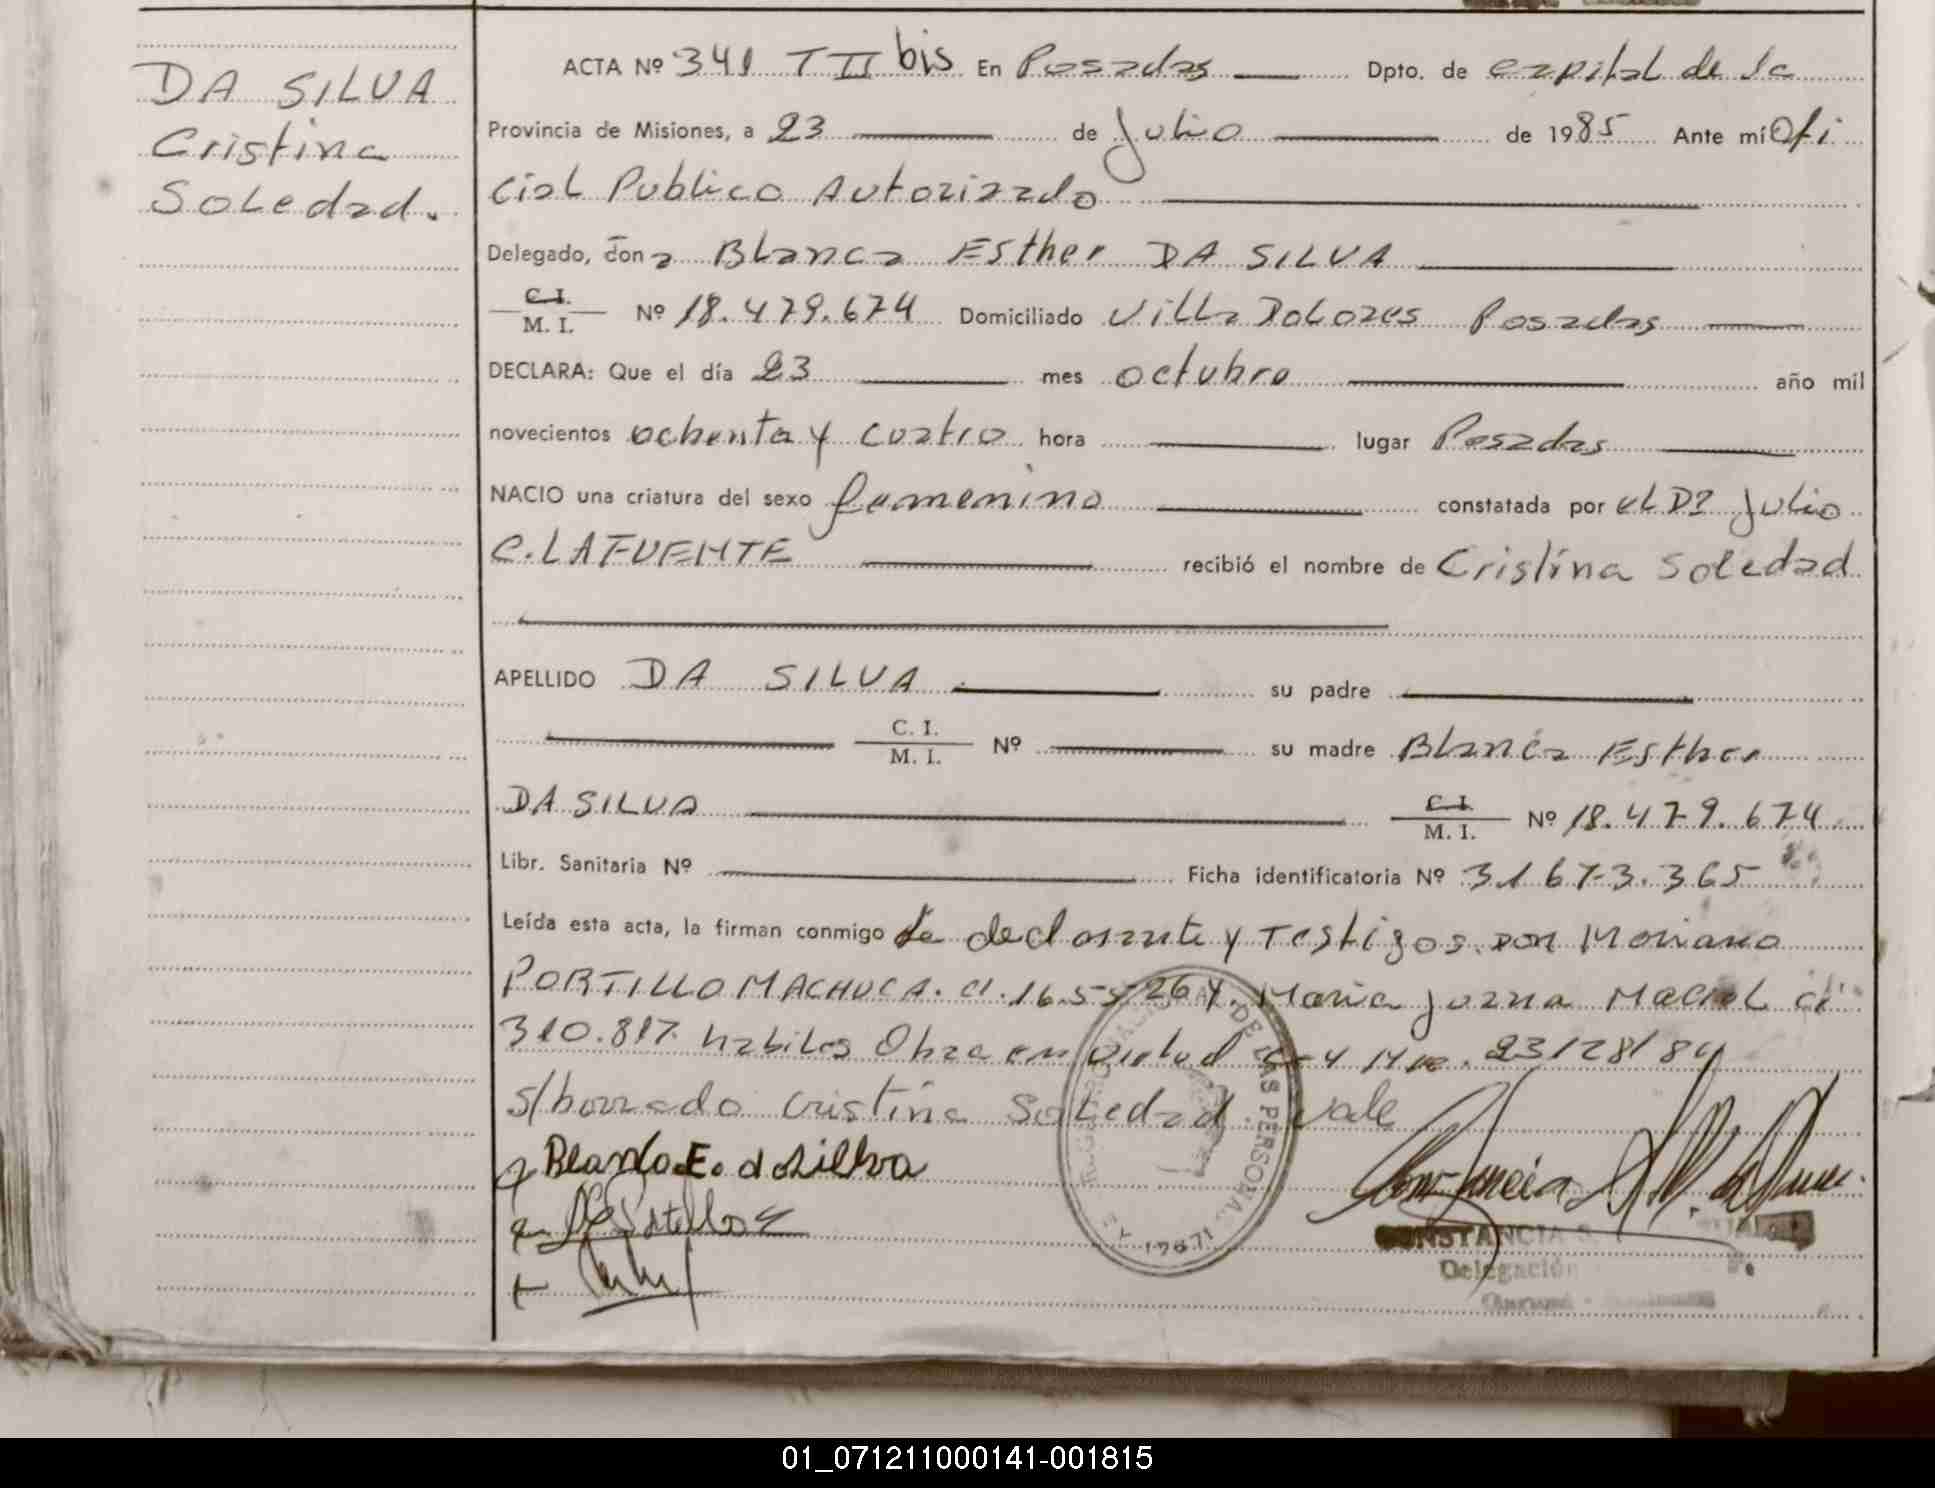 DA SILVA
Cristina
Soledad.
ACTA Nº 341 T II bis En Posadas Dpto. de capital de la
Provincia de Misiones, a 23 de Julio de 1985 Ante mí Ofi
cial Publico Autorizado
Delegado, doña Blanca Esther DA SILVA
C.I.
M. I. Nº 18.479.674 Domiciliado Villa Dolores Posadas
DECLARA: Que el día 23 mes octubre año mil
novecientos ochenta y cuatro hora lugar Posadas
NACIO una criatura del sexo femenino constatada por el Dr Julio
C. LAFUENTE recibió el nombre de Cristina Soledad
APELLIDO DA SILVA su padre
C. I.
M. I. Nº su madre Blanca Esther
DA SILVA C.I.
M. I. Nº 18.479.674
Libr. Sanitaria Nº Ficha identificatoria Nº 31.673.365
Leída esta acta, la firman conmigo la declarante y Testigos. Don Mariano
PORTILLO MACHUCA. CI. 16.55 26 y Maria Juana Maciel ci
310.817. habiles Obra en virtud 23/28/84
s/borrado Cristina Soledad. Vale
Blanca E. da Silva
DE LAS PERSONAS
CONSTANCIA S.
Delegación
01_071211000141-001815